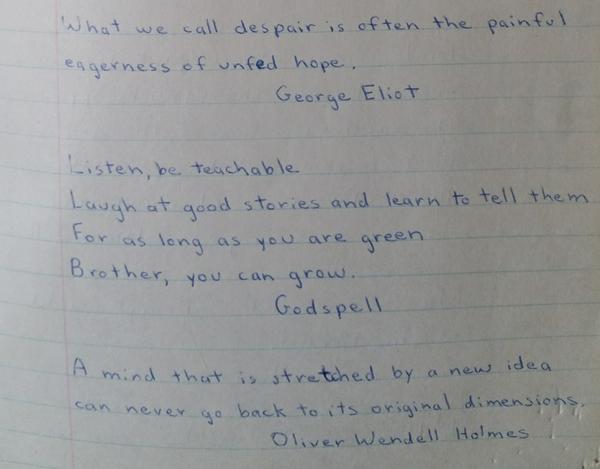 What we call despair is often the painful
eagerness of unfed hope.
George Eliot
Listen, be teachable
Laugh at good stories and learn to tell them
For as long as you are green
Brother, you can grow.
Godspell
A mind that is stretched by a new idea
can never go back to its original dimensions.
Oliver Wendell Holmes